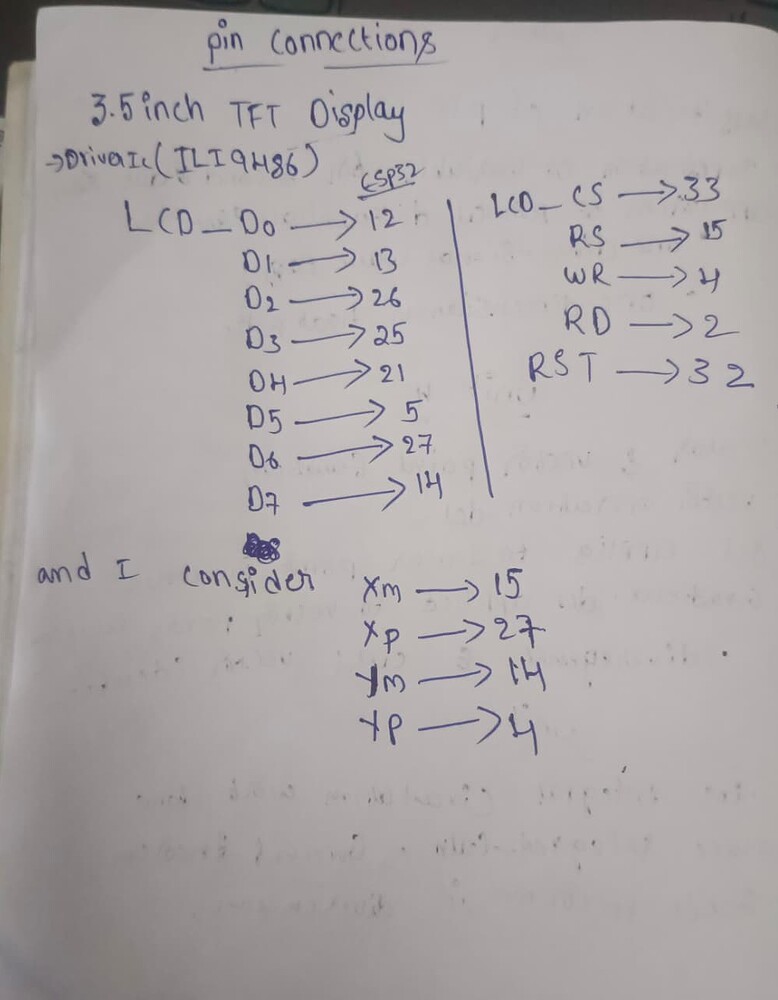 pin connections
3.5 inch TFT Display
→ Driver Ic (ILI9486)
ESP32
LCD_D0 → 12
D1 → 13
D2 → 26
D3 → 25
D4 → 21
D5 → 5
D6 → 27
D7 → 14
LCD_CS → 33
RS → 15
WR → 4
RD → 2
RST → 32
and I consider
Xm → 15
Xp → 27
Ym → 14
YP → 4